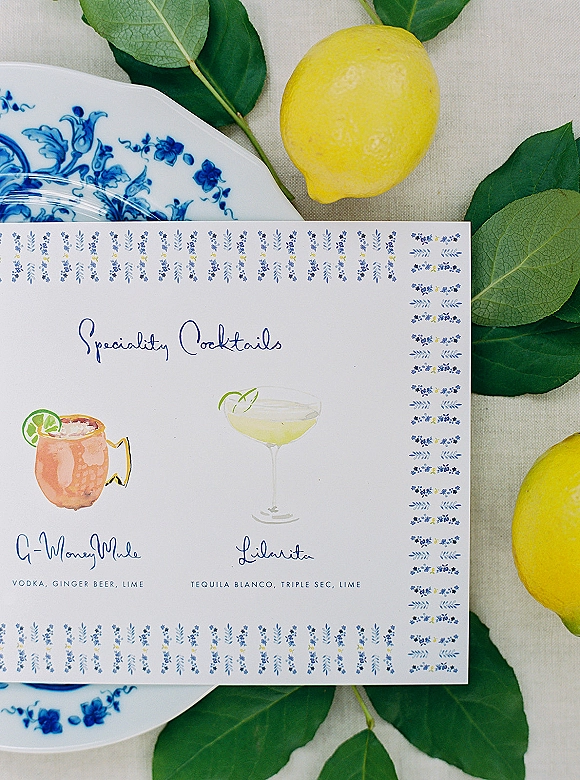 Speciality Cocktails
G-Money Mule
Lilarita
VODKA, GINGER BEER, LIME
TEQUILA BLANCO, TRIPLE SEC, LIME